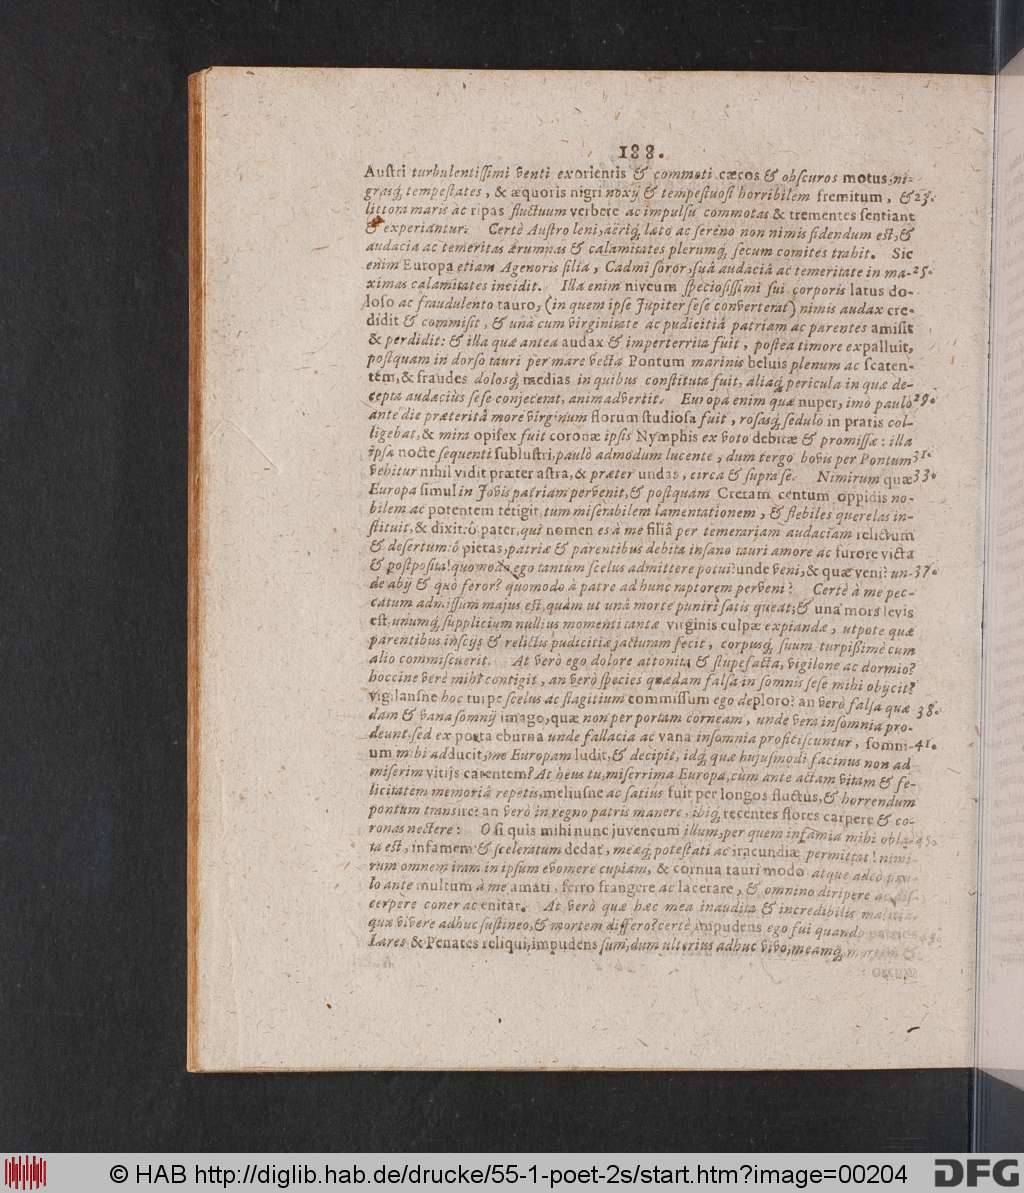 188.
Austri turbulentissimi venti exorientis & commoti cæcos & obscuros motus, ni-
grasq́; tempestates, & æquoris nigri noxÿ & tempestuosi horribilem fremitum, & 23.
littora maris ac ripas fluctuum verbere ac impulsu commotas & trementes sentiant
& experiantur. Certè Austro leni, aëriq́; lato ac sereno non nimis fidendum est, &
audacia ac temeritas ærumnas & calamitates plerumq́; secum comites trahit. Sic
enim Europa etiam Agenoris filia, Cadmi soror, suâ audaciâ ac temeritate in ma- 25.
ximas calamitates incidit. Illa enim niveum speciosissimi sui corporis latus do-
loso ac fraudulento tauro, (in quem ipse Jupiter sese converterat) nimis audax cre-
didit & commisit, & unâ cum virginitate ac pudicitiâ patriam ac parentes amisit
& perdidit: & illa quæ antea audax & imperterrita fuit, postea timore expalluit,
postquam in dorso tauri per mare vecta Pontum marinis beluis plenum ac scaten-
tem, & fraudes dolosq́; medias in quibus constituta fuit, aliaq́; pericula in quæ de-
cepta audacius sese conjecerat, animadvertit. Europa enim quæ nuper, imò paulò 29.
ante die præteritâ more virginum florum studiosa fuit, rosasq́; sedulo in pratis col-
ligebat, & mira opifex fuit coronæ ipsis Nymphis ex voto debitæ & promissæ: illa
ipsa nocte sequenti sublustri, paulò admodum lucente, dum tergo bovis per Pontum 31.
vehitur nihil vidit præter astra, & præter undas, circa & supra se. Nimirum quæ 33.
Europa simul in Jovis patriam pervenit, & postquam Cretam centum oppidis no-
bilem ac potentem tetigit, tum miserabilem lamentationem, & flebiles querelas in-
stituit, & dixit: ô pater, qui nomen es à me filiâ per temerariam audaciam relictum
& desertum: ô pietas, patriæ & parentibus debita insano tauri amore ac furore victa
& postposita! quomodo ego tantum scelus admittere potui? unde veni, & quæ veni? un- 37.
de abÿ & quò feror? quomodo à patre ad hunc raptorem perveni? Certè à me pec-
catum admissum majus est, quàm ut unâ morte puniri satis queat; & una mors levis
est, unumq́; supplicium nullius momenti tantæ virginis culpæ expiandæ, utpote quæ
parentibus inscÿs & relictis pudicitiæ jacturam fecit, corpusq́; suum turpissimè cum
alio commiscuerit. At verò ego dolore attonita & stupefacta, vigilone ac dormio?
hoccine verè mihi contigit, an verò species quædam falsa in somnis sese mihi obÿcit?
vigilansne hoc turpe scelus ac flagitium commissum ego deploro? an verò falsa quæ 38.
dam & vana somnÿ imago, quæ non per portam corneam, unde vera insomnia pro-
deunt, sed ex porta eburna unde fallacia ac vana insomnia proficiscuntur, somni- 41.
um mihi adducit, me Europam ludit, & decipit, idq́; quæ hujusmodi facinus non ad
miserim vitijs carentem? At heus tu, miserrima Europa, cum ante actam vitam & fe-
licitatem memoriâ repetis, meliusne ac satius fuit per longos fluctus, & horrendum
pontum transire? an verò in regno patris manere, ibiq́; recentes flores carpere & co-
ronas nectere: O si quis mihi nunc juvencum illum, per quem infamia mihi obla- 45.
ta est, infamem & sceleratum dedat, meæq́; potestati ac iracundiæ permittat! nimi-
rum omnem iram in ipsum evomere cupiam, & cornua tauri modo atque adeò pau-
lo ante multum à me amati, ferro frangere ac lacerare, & omnino diripere ac dis-
cerpere coner ac enitar. At verò quæ hæc mea inaudita & incredibilis malitia
quæ vivere adhuc sustineo, & mortem differo? certè impudens ego fui quando patrios 49.
Lares & Penates reliqui, impudens sum, dum ulterius adhuc vivo, meamq́; mortem &
© HAB http://diglib.hab.de/drucke/55-1-poet-2s/start.htm?image=00204
DFG